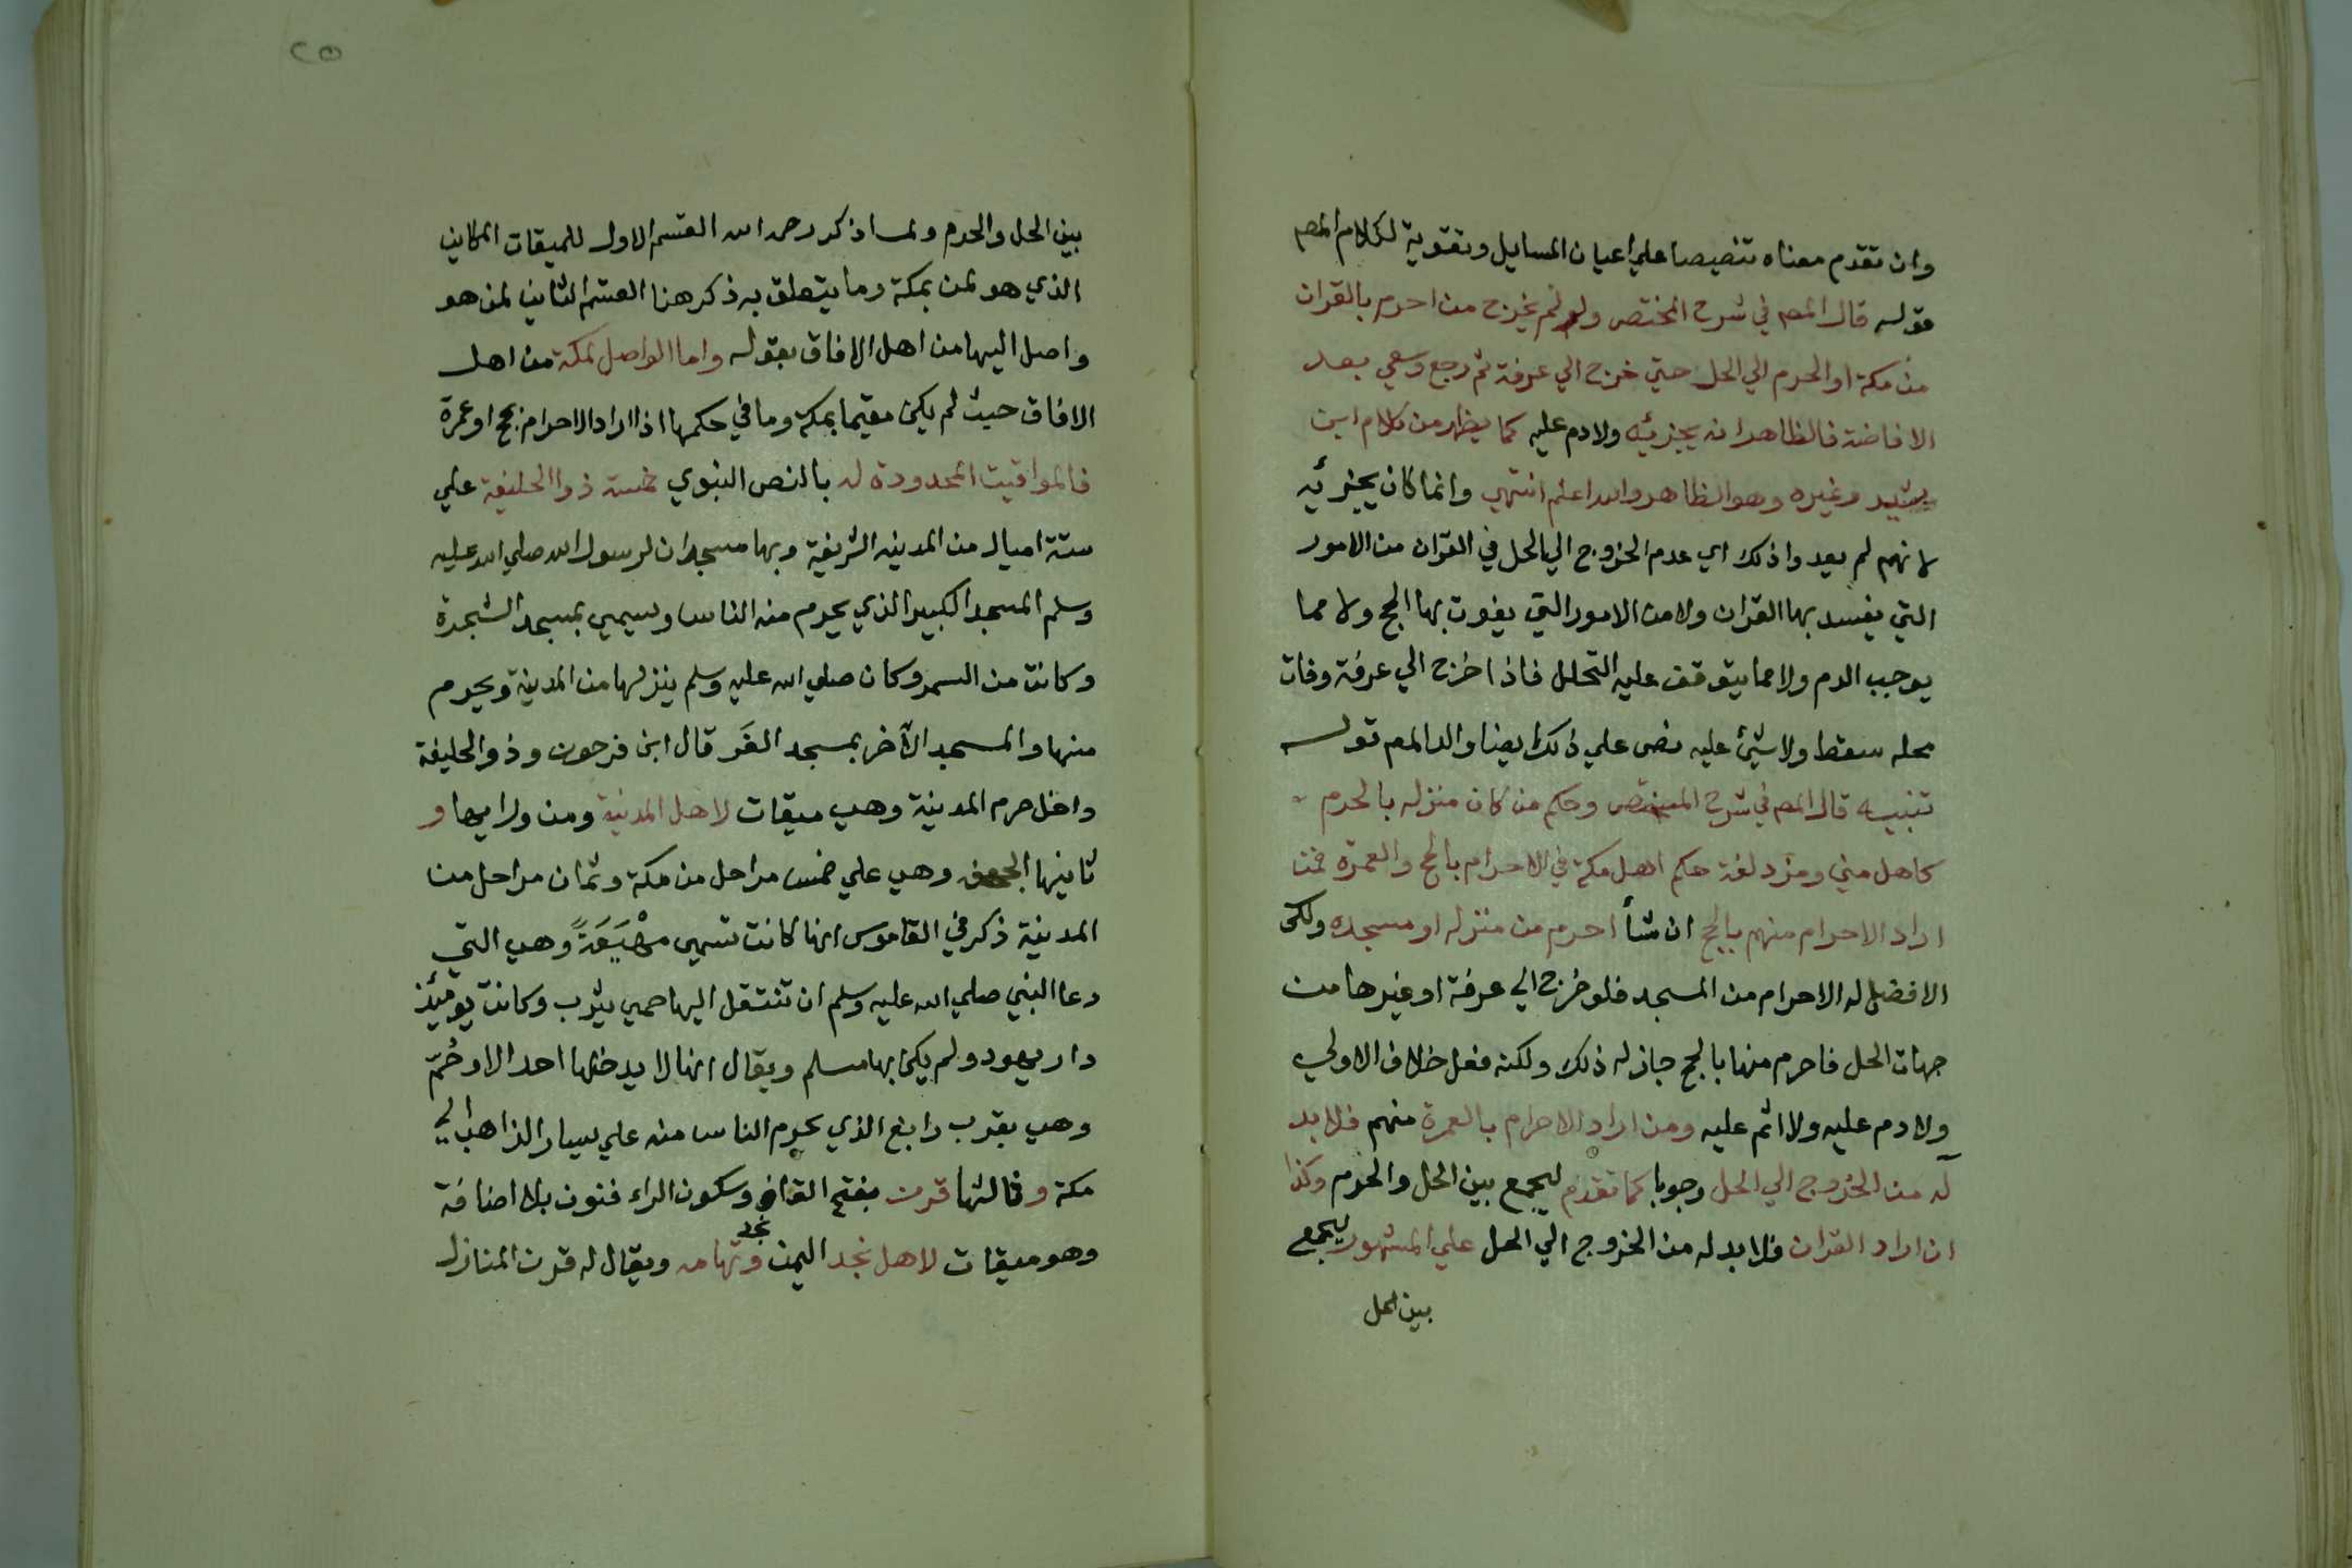 وان تقدم معناه تنصيصا علي اعيان المسايل وتقوية لكلام المص
قوله قال المص في شرح المختصر ولو لم يخرج من احرم بالقران
من مكة او الحرم الي الحل حتي خرج الي عرفة ثم رجع وسعي بعد
الافاضة فالظاهر انه يجزئيه ولا دم عليه كما يظهر من كلام ابن
رشيد وغيره وهو الظاهر والله اعلم انتهي وانما كان يجزئيه
لانهم لم يعدوا ذلك اي عدم الخروج الي الحل في القران من الامور
التي يفسد بها القران ولا من الامور التي يفوت بها الحج ولا مما
يوجب الدم ولا مما يتوقف عليه التحلل فاذا خرج الي عرفة وفات
محله سقط ولا شيئ عليه نص علي ذلك ايضا والد المص قوله
تنبيه قال المص في شرح المختصر وحكم من كان منزله بالحرم
كاهل مني ومزدلفة حكم اهل مكة في الاحرام بالحج والعمرة فمن
اراد الاحرام منهم بالحج ان شأ احرم من منزله او مسجده ولكن
الافضل له الاحرام من المسجد فلو خرج الي عرفة او غيرها من
جهات الحل فاحرم منها بالحج جاز له ذلك ولكنه فعل خلاف الاولي
ولا دم عليه ولا اثم عليه ومن اراد الاحرام بالعمرة منهم فلا بد
له من الخروج الي الحل وجوبا كما تقدم ليجمع بين الحل والحرم وكذا
ان اراد القران فلا بد له من الخروج الي الحل علي المشهور ليجمع
بين الحل
٢٥
بين الحل والحرم ولما ذكر رحمه الله القسم الاول للميقات المكاني
الذي هو لمن بمكة وما يتعلق به ذكر هنا القسم الثاني لمن هو
واصل اليها من اهل الافاق بقوله واما الواصل لمكة من اهل
الافاق حيث لم يكن مقيما بمكة وما في حكمها اذا اراد الاحرام بحج او عمرة
فالمواقيت المحدودة له بالنص النبوي خمسة ذو الحليفة علي
ستة اميال من المدينه الشريفة وبها مسجدان لرسول الله صلي الله عليه
وسلم المسجد الكبير الذي يحرم منه الناس ويسمي بمسجد الشجرة
وكانت من السمر وكان صلي الله عليه وسلم ينزلها من المدينة ويحرم
منها والمسجد الآخر بمسجد المعرس قال ابن فرحون وذو الحليفة
داخل حرم المدينة وهي ميقات لاهل المدينة ومن ورايها و
ثانيها الجحفه وهي علي خمس مراحل من مكة وثمان مراحل من
المدينة ذكر في القاموس انها كانت تسمي مَهْيَعَةً وهي التي
دعا النبي صلي الله عليه وسلم ان تنتقل اليها حمي يثرب وكانت يومئذ
دار يهود ولم يكن بها مسلم ويقال انها لا يدخلها احد الا وحُمّ
وهي بقرب رابغ الذي يحرم الناس منه علي يسار الذاهب الي
مكة وثالثها قرن بفتح القاف وسكون الراء فنون بلا اضافة
وهو ميقات لاهل نجد اليمن ونجد تهامه ويقال له قرن المنازل